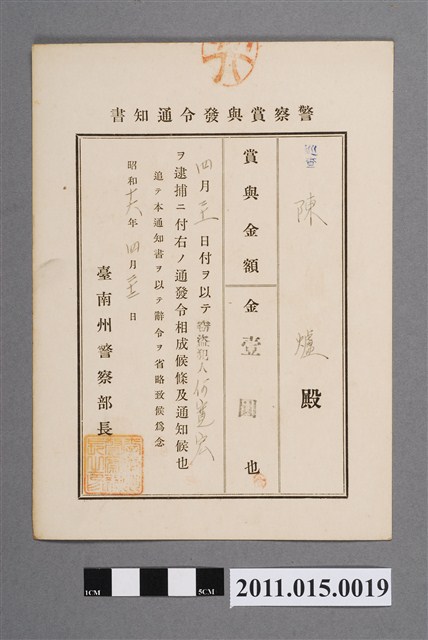 警察賞與發令通知書
巡查 陳 爐 殿
賞與金額 金壹圓也
四月 日付ヲ以テ窃盜犯人何寬宏
ヲ逮捕ニ付右ノ通發令相成候條及通知候也
追テ本通知書ヲ以テ辭令ヲ省略致候爲念
昭和 年四月 日
臺南州警察部長
1CM
5CM
2011.015.0019